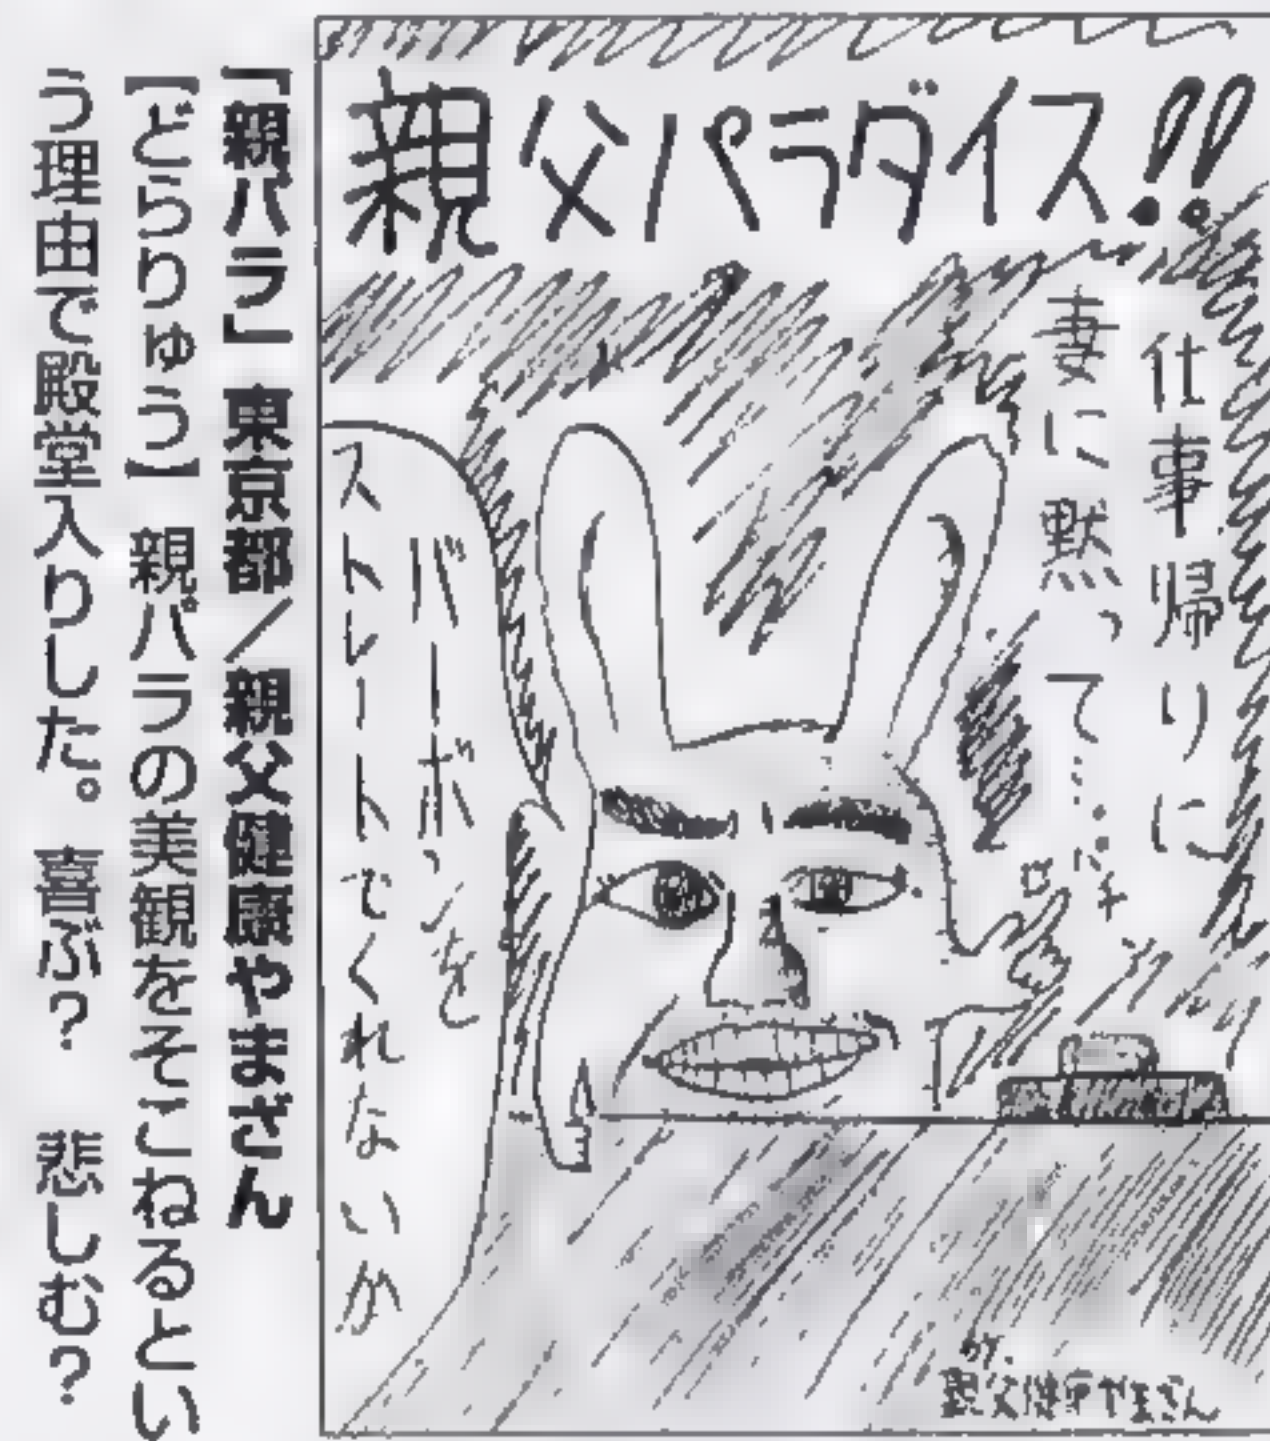 親父パラダイス!!
仕事帰りに
妻に黙って…
バーボンを
ストレートでくれないか
親父健康やまさん
「親バラ」東京都／親父健康やまさん
【どらりゅう】親パラの美観をそこねるとい
う理由で殿堂入りした。喜ぶ？　悲しむ？